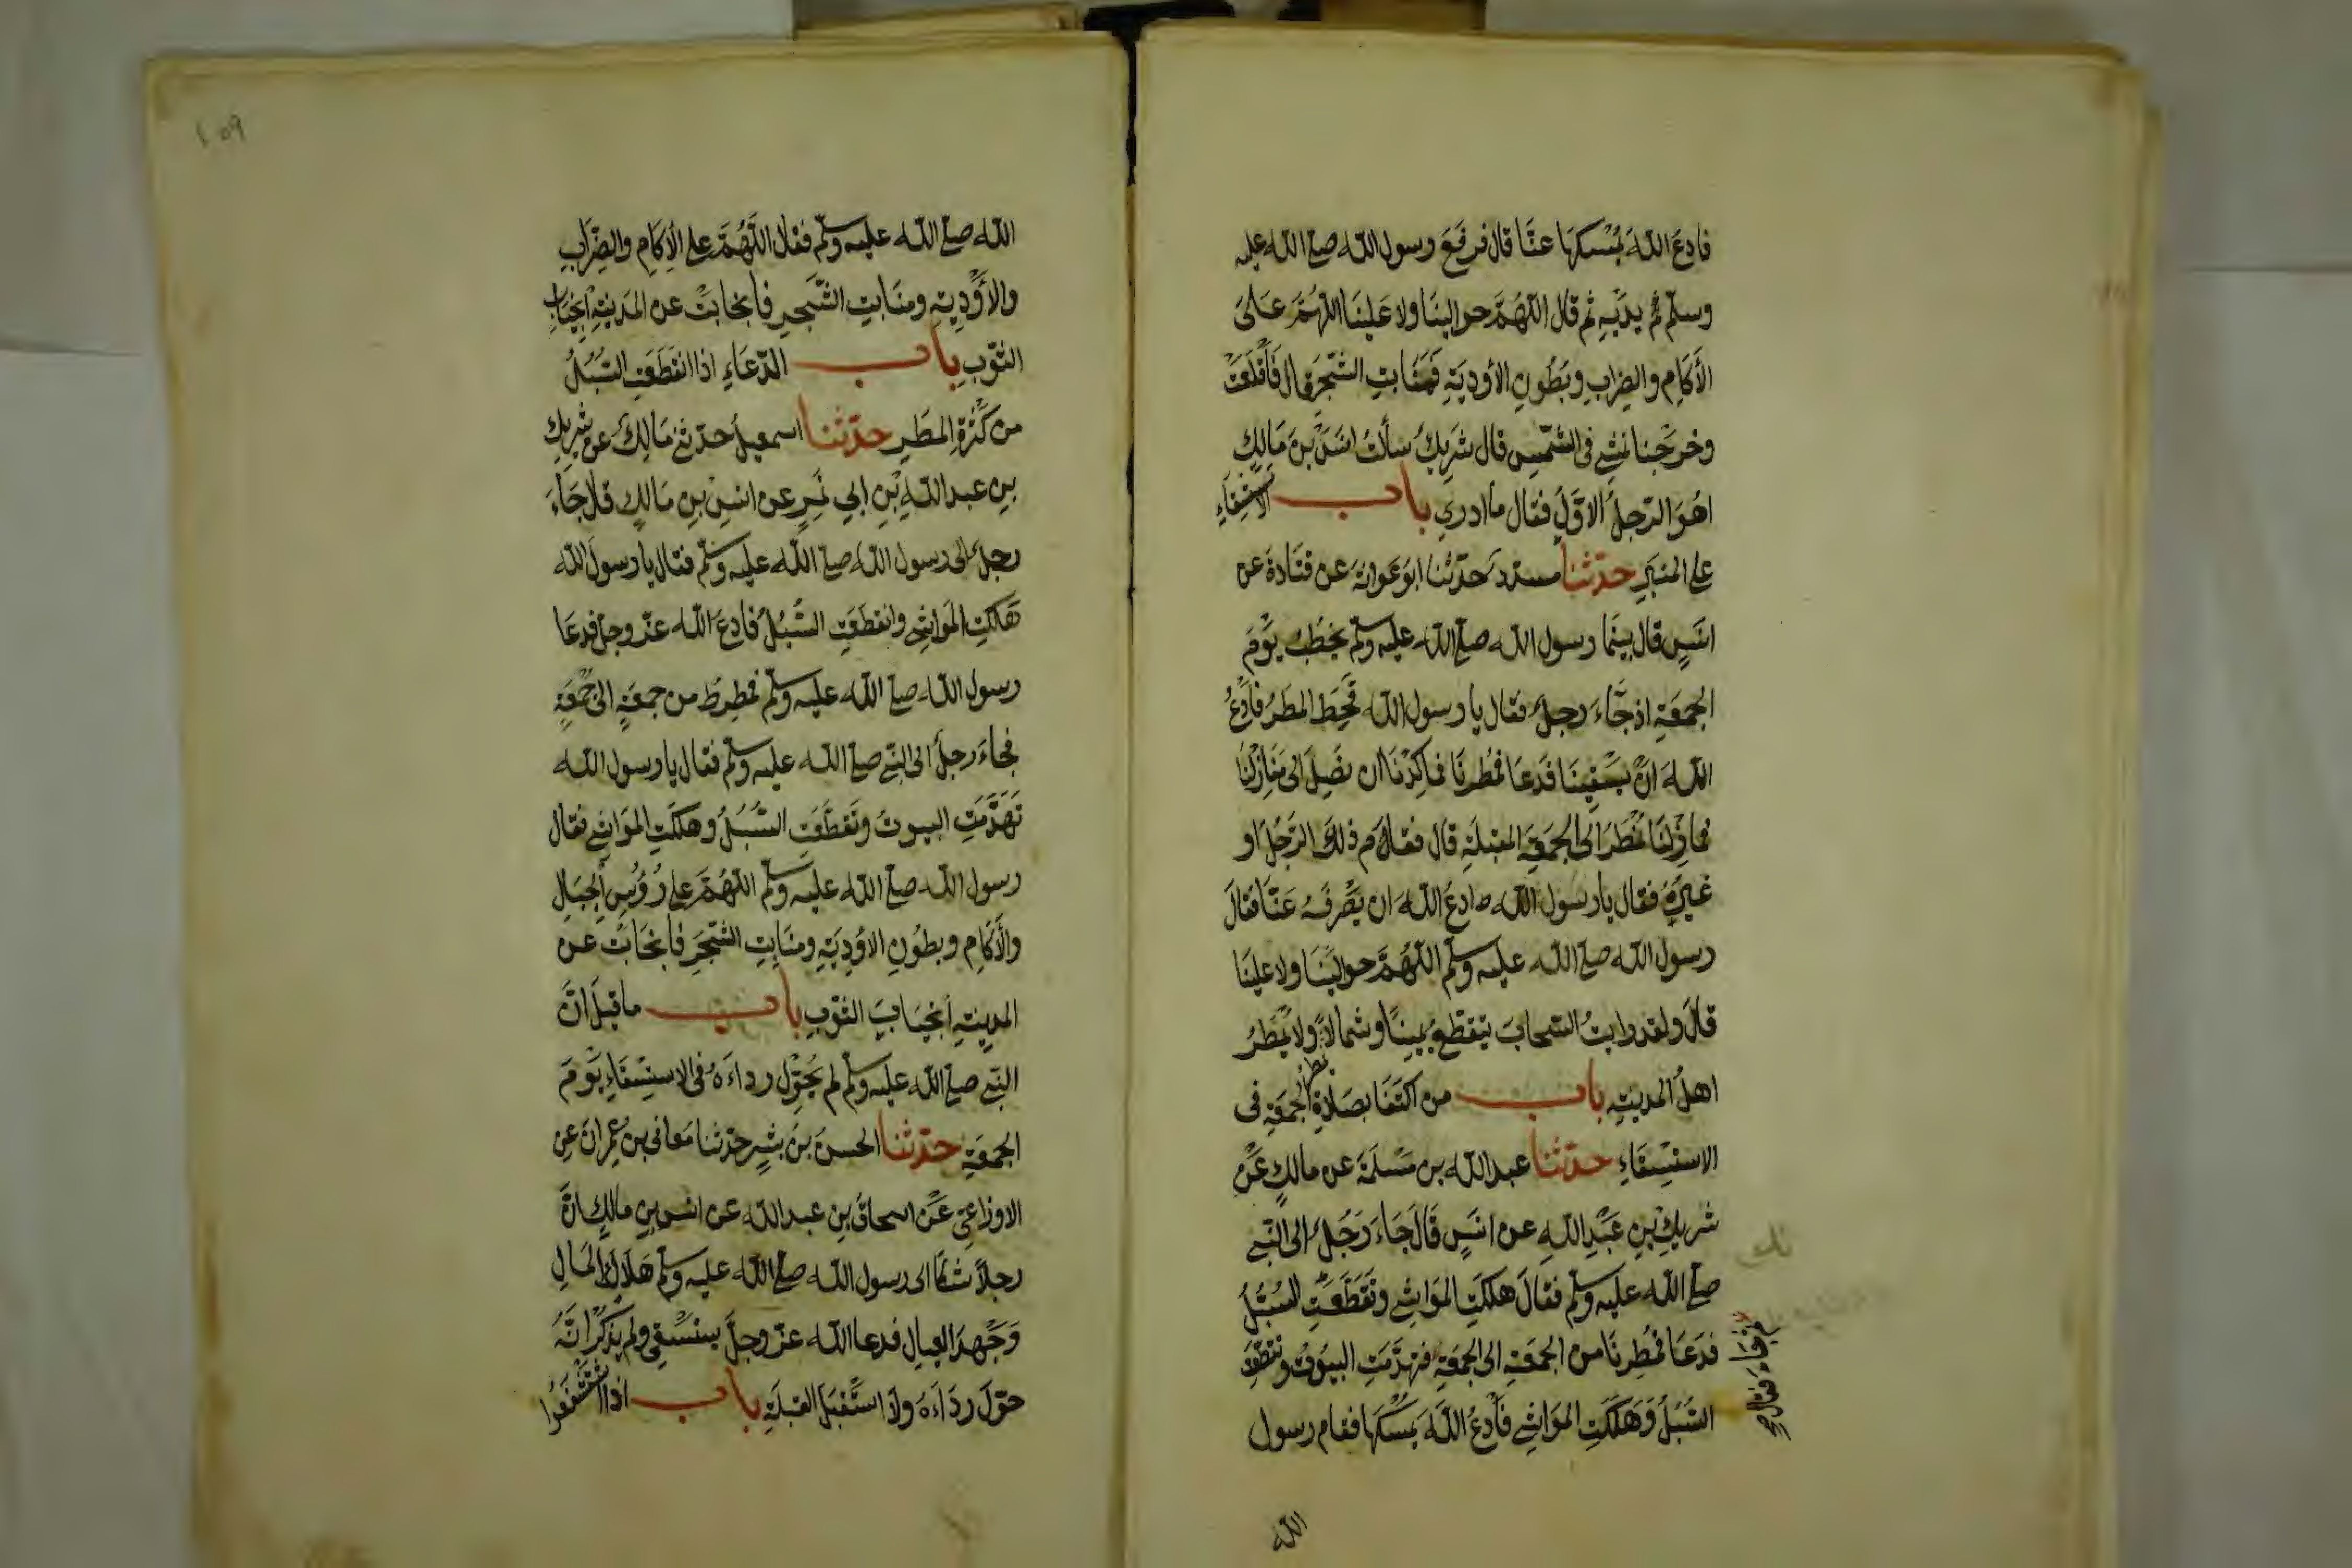 فادع الله يمسكها عنا قال فرفع رسول الله صلى الله عليه
وسلم ثم يديه ثم قال اللهم حوالينا ولا علينا اللهم على
الأكام والضراب وبطون الأودية ومنابت الشجر قال فأقلعت
وخرجنا نمشي في الشمس قال شريك سألت انس بن مالك
اهو الرجل الاول فقال ما ادري باب الاستسقاء
على المنبر حدثنا مسدد حدثنا ابو عوانة عن قتادة عن
انس قال بينما رسول الله صلى الله عليه وسلم يخطب يوم
الجمعة اذ جاء رجل فقال يا رسول الله قحط المطر فادع
الله ان يسقينا فدعا فمطرنا فما كدنا ان نصل الى منازلنا
فما زلنا نمطر الى الجمعة المقبلة قال فقام ذلك الرجل او
غيره فقال يا رسول الله ادع الله ان يصرفه عنا فقال
رسول الله صلى الله عليه وسلم اللهم حوالينا ولا علينا
قال ولقد رايت السحاب يتقطع يمينا وشمالا ولا يمطر
اهل المدينة باب من اكتفا بصلاة الجمعة في
الاستسقاء حدثنا عبد الله بن مسلمة عن مالك عن
شريك بن عبد الله عن انس قال جاء رجل الى النبي
صلى الله عليه وسلم فقال هلكت المواشي وتقطعت السبل
فدعا فمطرنا من الجمعة الى الجمعة فتهدمت البيوت وتقطعت
السبل وهلكت المواشي فادع الله يمسكها فقام رسول
الله
الله صلى الله عليه وسلم فقال اللهم على الأكام والضراب
والأودية ومنابت الشجر فانجابت عن المدينة انجياب
الثوب باب الدعاء اذا انقطعت السبل
من كثرة المطر حدثنا اسمعيل حدثني مالك عن شريك
بن عبد الله بن ابي نمر عن انس بن مالك قال جاء
رجل الى رسول الله صلى الله عليه وسلم فقال يا رسول الله
هلكت المواشي وانقطعت السبل فادع الله عز وجل فدعا
رسول الله صلى الله عليه وسلم فمطرط من جمعة الى جمعة
فجاء رجل الى النبي صلى الله عليه وسلم فقال يا رسول الله
تهدمت البيوت وتقطعت السبل وهلكت المواشي فقال
رسول الله صلى الله عليه وسلم اللهم على رؤس الجبال
والأكام وبطون الاودية ومنابت الشجر فانجابت عن
المدينة انجياب الثوب باب ما قيل ان
النبي صلى الله عليه وسلم لم يحول رداءه في الاستسقاء يوم
الجمعة حدثنا الحسن بن بشر حدثنا معافى بن عمران عن
الاوزاعي عن اسحاق بن عبد الله عن انس بن مالك ان
رجلا شكا الى رسول الله صلى الله عليه وسلم هلاك المال
وجهد العيال فدعا الله عز وجل يستسقي ولم يذكر انه
حول رداءه ولا استقبل القبلة باب اذا استشفعوا